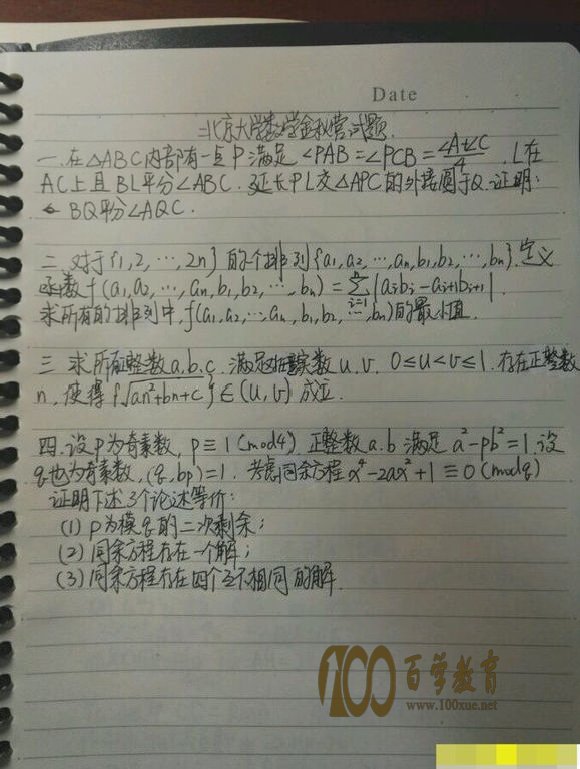 Date
北京大学数学金秋营试题.
一.在△ABC内部有一点P满足 ∠PAB=∠PCB=(∠A+∠C)/4. L在
AC上且BL平分∠ABC. 延长PL交△APC的外接圆于Q. 证明:
BQ平分∠AQC.
二.对于{1,2,…,2n}的个排列{a₁,a₂,…,aₙ,b₁,b₂,…,bₙ}.定义
函数f(a₁,a₂,…,aₙ,b₁,b₂,…,bₙ)=∑ⁿᵢ₌₁|aᵢbᵢ-aᵢ₊₁bᵢ₊₁|.
求所有的排列中,f(a₁,a₂,…aₙ,b₁,b₂,…,bₙ)的最小值.
三 求所有正整数a,b,c.满足对实数u,v. 0≤u<v≤1.存在正整数
n,使得{√(an²+bn+c)}∈(u,v)成立.
四.设p为奇素数,p≡1(mod4).正整数a.b满足a²-pb²=1.设
q也为奇素数,(q,bp)=1. 考虑同余方程x⁴-2ax²+1≡0(modq)
证明下述3个论述等价:
(1)p为模q的二次剩余;
(2)同余方程存在一个解;
(3)同余方程存在四个互不相同的解.
100百学教育
www.100xue.net